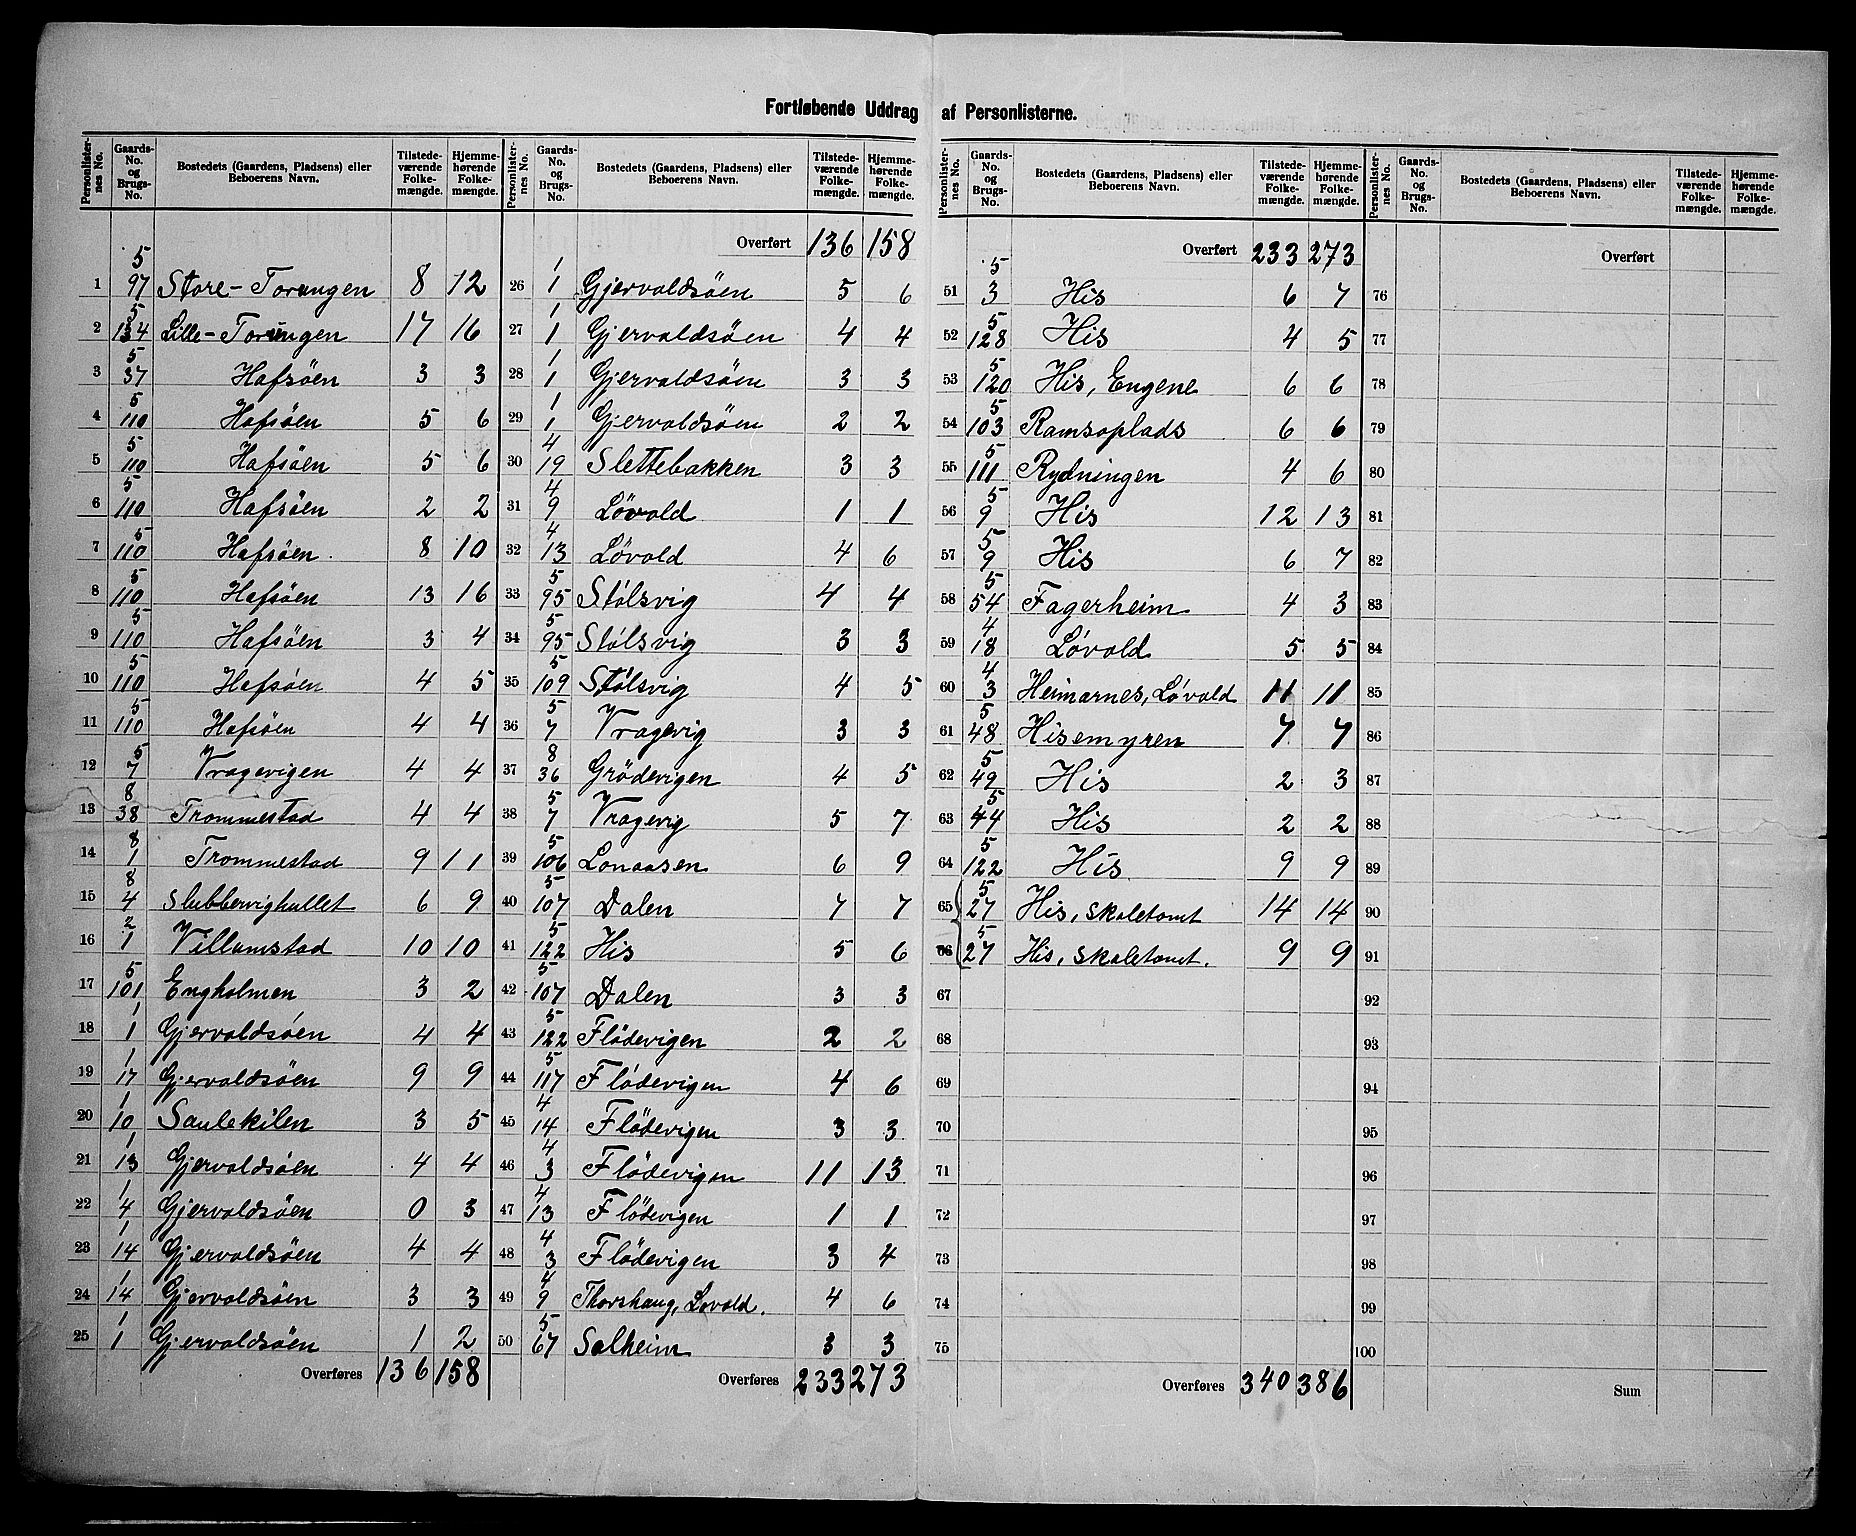 Fortløbende Uddrag af Personlisterne.
Personlisternes No. | Gaards-No. og Brugs-No. | Bostedets (Gaardens, Pladsens) eller Beboerens Navn. | Tilstedeværende Folkemængde. | Hjemmehørende Folkemængde.
1 | 5/97 | Store-Torungen | 8 | 12
2 | 5/134 | Lille-Torungen | 17 | 16
3 | 5/37 | Hafsöen | 3 | 3
4 | 5/110 | Hafsöen | 5 | 6
5 | 5/110 | Hafsöen | 5 | 6
6 | 5/110 | Hafsöen | 2 | 2
7 | 5/110 | Hafsöen. | 8 | 10
8 | 5/110 | Hafsöen | 13 | 16
9 | 5/110 | Hafsöen | 3 | 4
10 | 5/110 | Hafsöen | 4 | 5
11 | 5/110 | Hafsöen | 4 | 4
12 | 5/7 | Vragevigen | 4 | 4
13 | 8/38 | Trommestad | 4 | 4
14 | 8/1 | Trommestad | 9 | 11
15 | 8/4 | Slubbervighullet | 6 | 9
16 | 2/1 | Villumstad | 10 | 10
17 | 5/101 | Engholmen | 3 | 2
18 | 1/1 | Gjervoldsöen | 4 | 4
19 | 1/17 | Gjervoldsöen | 9 | 9
20 | 1/10 | Saulekilen | 3 | 5
21 | 1/13 | Gjervoldsöen | 4 | 4
22 | 1/4 | Gjervoldsöen | 0 | 3
23 | 1/14 | Gjervoldsöen | 4 | 4
24 | 1/14 | Gjervoldsöen | 3 | 3
25 | 1/1 | Gjervoldsöen | 1 | 2
Overføres 136 158
Personlisternes No. | Gaards-No. og Brugs-No. | Bostedets (Gaardens, Pladsens) eller Beboerens Navn. | Tilstedeværende Folkemængde. | Hjemmehørende Folkemængde.
Overført 136 158
26 | 1/1 | Gjervoldsöen | 5 | 6
27 | 1/1 | Gjervoldsöen | 4 | 4
28 | 1/1 | Gjervoldsöen | 3 | 3
29 | 1/1 | Gjervoldsöen | 2 | 2
30 | 4/19 | Slettebakken | 3 | 3
31 | 4/9 | Lövold | 1 | 1
32 | 4/13 | Lövold | 4 | 6
33 | 5/95 | Stølsvig | 4 | 4
34 | 5/95 | Stølsvig | 3 | 3
35 | 5/109 | Stølsvig | 4 | 5
36 | 5/7 | Vragevig | 3 | 3
37 | 8/36 | Grödevigen | 4 | 5
38 | 5/7 | Vragevig | 5 | 7
39 | 5/106 | Lonaasen | 6 | 9
40 | 5/107 | Dalen | 7 | 7
41 | 5/122 | His | 5 | 6
42 | 5/107 | Dalen | 3 | 3
43 | 5/122 | Flödevigen | 2 | 2
44 | 5/117 | Flödevigen | 4 | 6
45 | 4/14 | Flödevigen | 3 | 3
46 | 4/3 | Flödevigen | 11 | 13
47 | 4/13 | Flödevigen | 1 | 1
48 | 4/3 | Flödevigen | 3 | 4
49 | 4/9 | Thorshaug, Lovold. | 4 | 6
50 | 5/67 | Solheim | 3 | 3
Overføres 233 273
Personlisternes No. | Gaards-No. og Brugs-No. | Bostedets (Gaardens, Pladsens) eller Beboerens Navn. | Tilstedeværende Folkemængde. | Hjemmehørende Folkemængde.
Overført 233 273
51 | 5/3 | His | 6 | 7
52 | 5/128 | His | 4 | 5
53 | 5/120 | His, Engene | 6 | 6
54 | 5/103 | Ramsoplads | 6 | 6
55 | 5/111 | Rydningen | 4 | 6
56 | 5/9 | His | 12 | 13
57 | 5/9 | His | 6 | 7
58 | 5/54 | Fagerheim | 4 | 3
59 | 4/18 | Lövold | 5 | 5
60 | 4/3 | Heimarnes, Lövold | 11 | 11
61 | 5/48 | Hisemyren | 7 | 7
62 | 5/49 | His | 2 | 3
63 | 5/44 | His | 2 | 2
64 | 5/122 | His | 9 | 9
65 | 5/27 | His, skoletomt | 14 | 14
66 | 5/27 | His, skoletomt. | 9 | 9
67
68
69
70
71
72
73
74
75
Overføres 340 386
Personlisternes No. | Gaards-No. og Brugs-No. | Bostedets (Gaardens, Pladsens) eller Beboerens Navn. | Tilstedeværende Folkemængde. | Hjemmehørende Folkemængde.
Overført
76
77
78
79
80
81
82
83
84
85
86
87
88
89
90
91
92
93
94
95
96
97
98
99
100
Sum